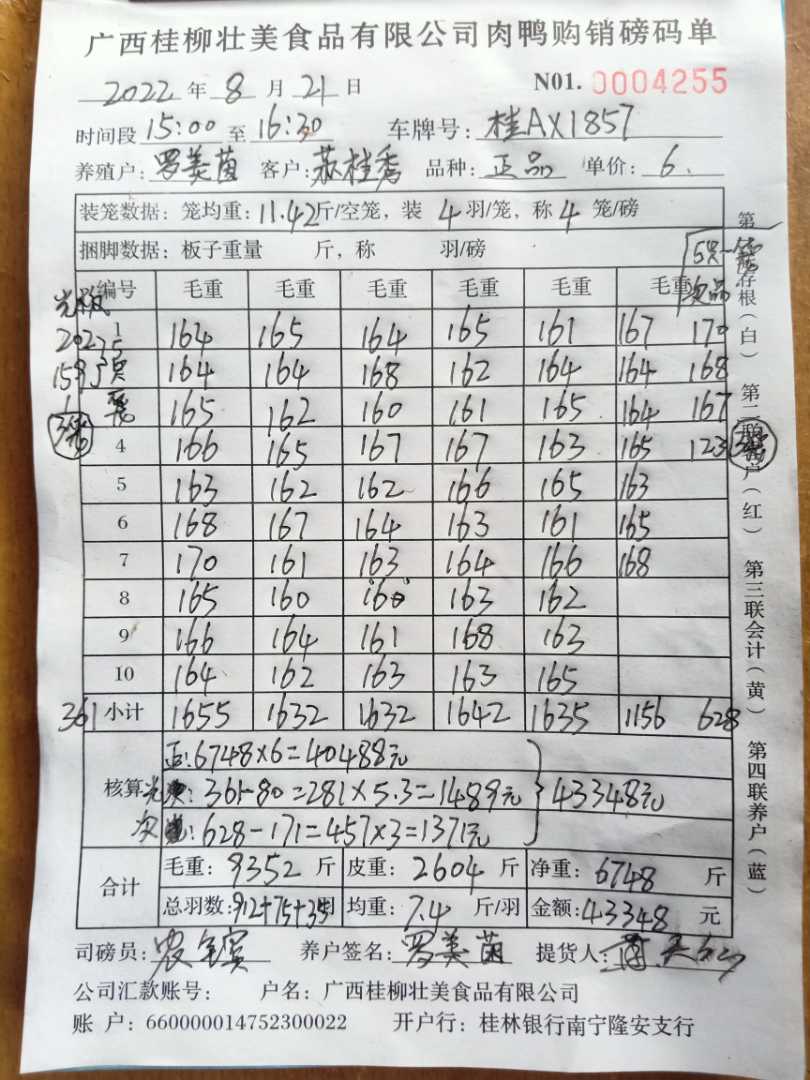 广西桂柳壮美食品有限公司肉鸭购销磅码单
2022 年 8 月 21 日 N01. 0004255
时间段 15:00 至 16:30 车牌号: 桂AX1857
养殖户: 罗美茵 客户: 苏桂秀 品种: 正品 单价: 6.
装笼数据: 笼均重: 11.42 斤/空笼, 装 4 羽/笼, 称 4 笼/磅
捆脚数据: 板子重量 斤, 称 羽/磅
5只一笼
次品
编号 毛重 毛重 毛重 毛重 毛重 毛重
1 164 165 164 165 161 167 170
159 164 164 168 162 164 164 168
165 162 160 161 165 164 167
4 166 165 167 167 163 165 123
5 163 162 162 166 165 163
6 168 167 164 163 161 165
7 170 161 163 164 166 168
8 165 160 160 163 162
9 166 164 161 168 163
10 164 162 163 163 165
361 小计 1655 1632 1632 1642 1635 1156 628
核算
正: 6748×6=40488元
光: 361-80=281×5.3=1489元 } 43348元
次: 628-171=457×3=1371元
合计
毛重: 9352 斤 皮重: 2604 斤 净重: 6748 斤
总羽数: 912+75+35 均重: 7.4 斤/羽 金额: 43348 元
司磅员: 养户签名: 罗美茵 提货人:
公司汇款账号: 户名: 广西桂柳壮美食品有限公司
账 户: 660000014752300022 开户行: 桂林银行南宁隆安支行
第一联存根(白) 第二联客户(红) 第三联会计(黄) 第四联养户(蓝)